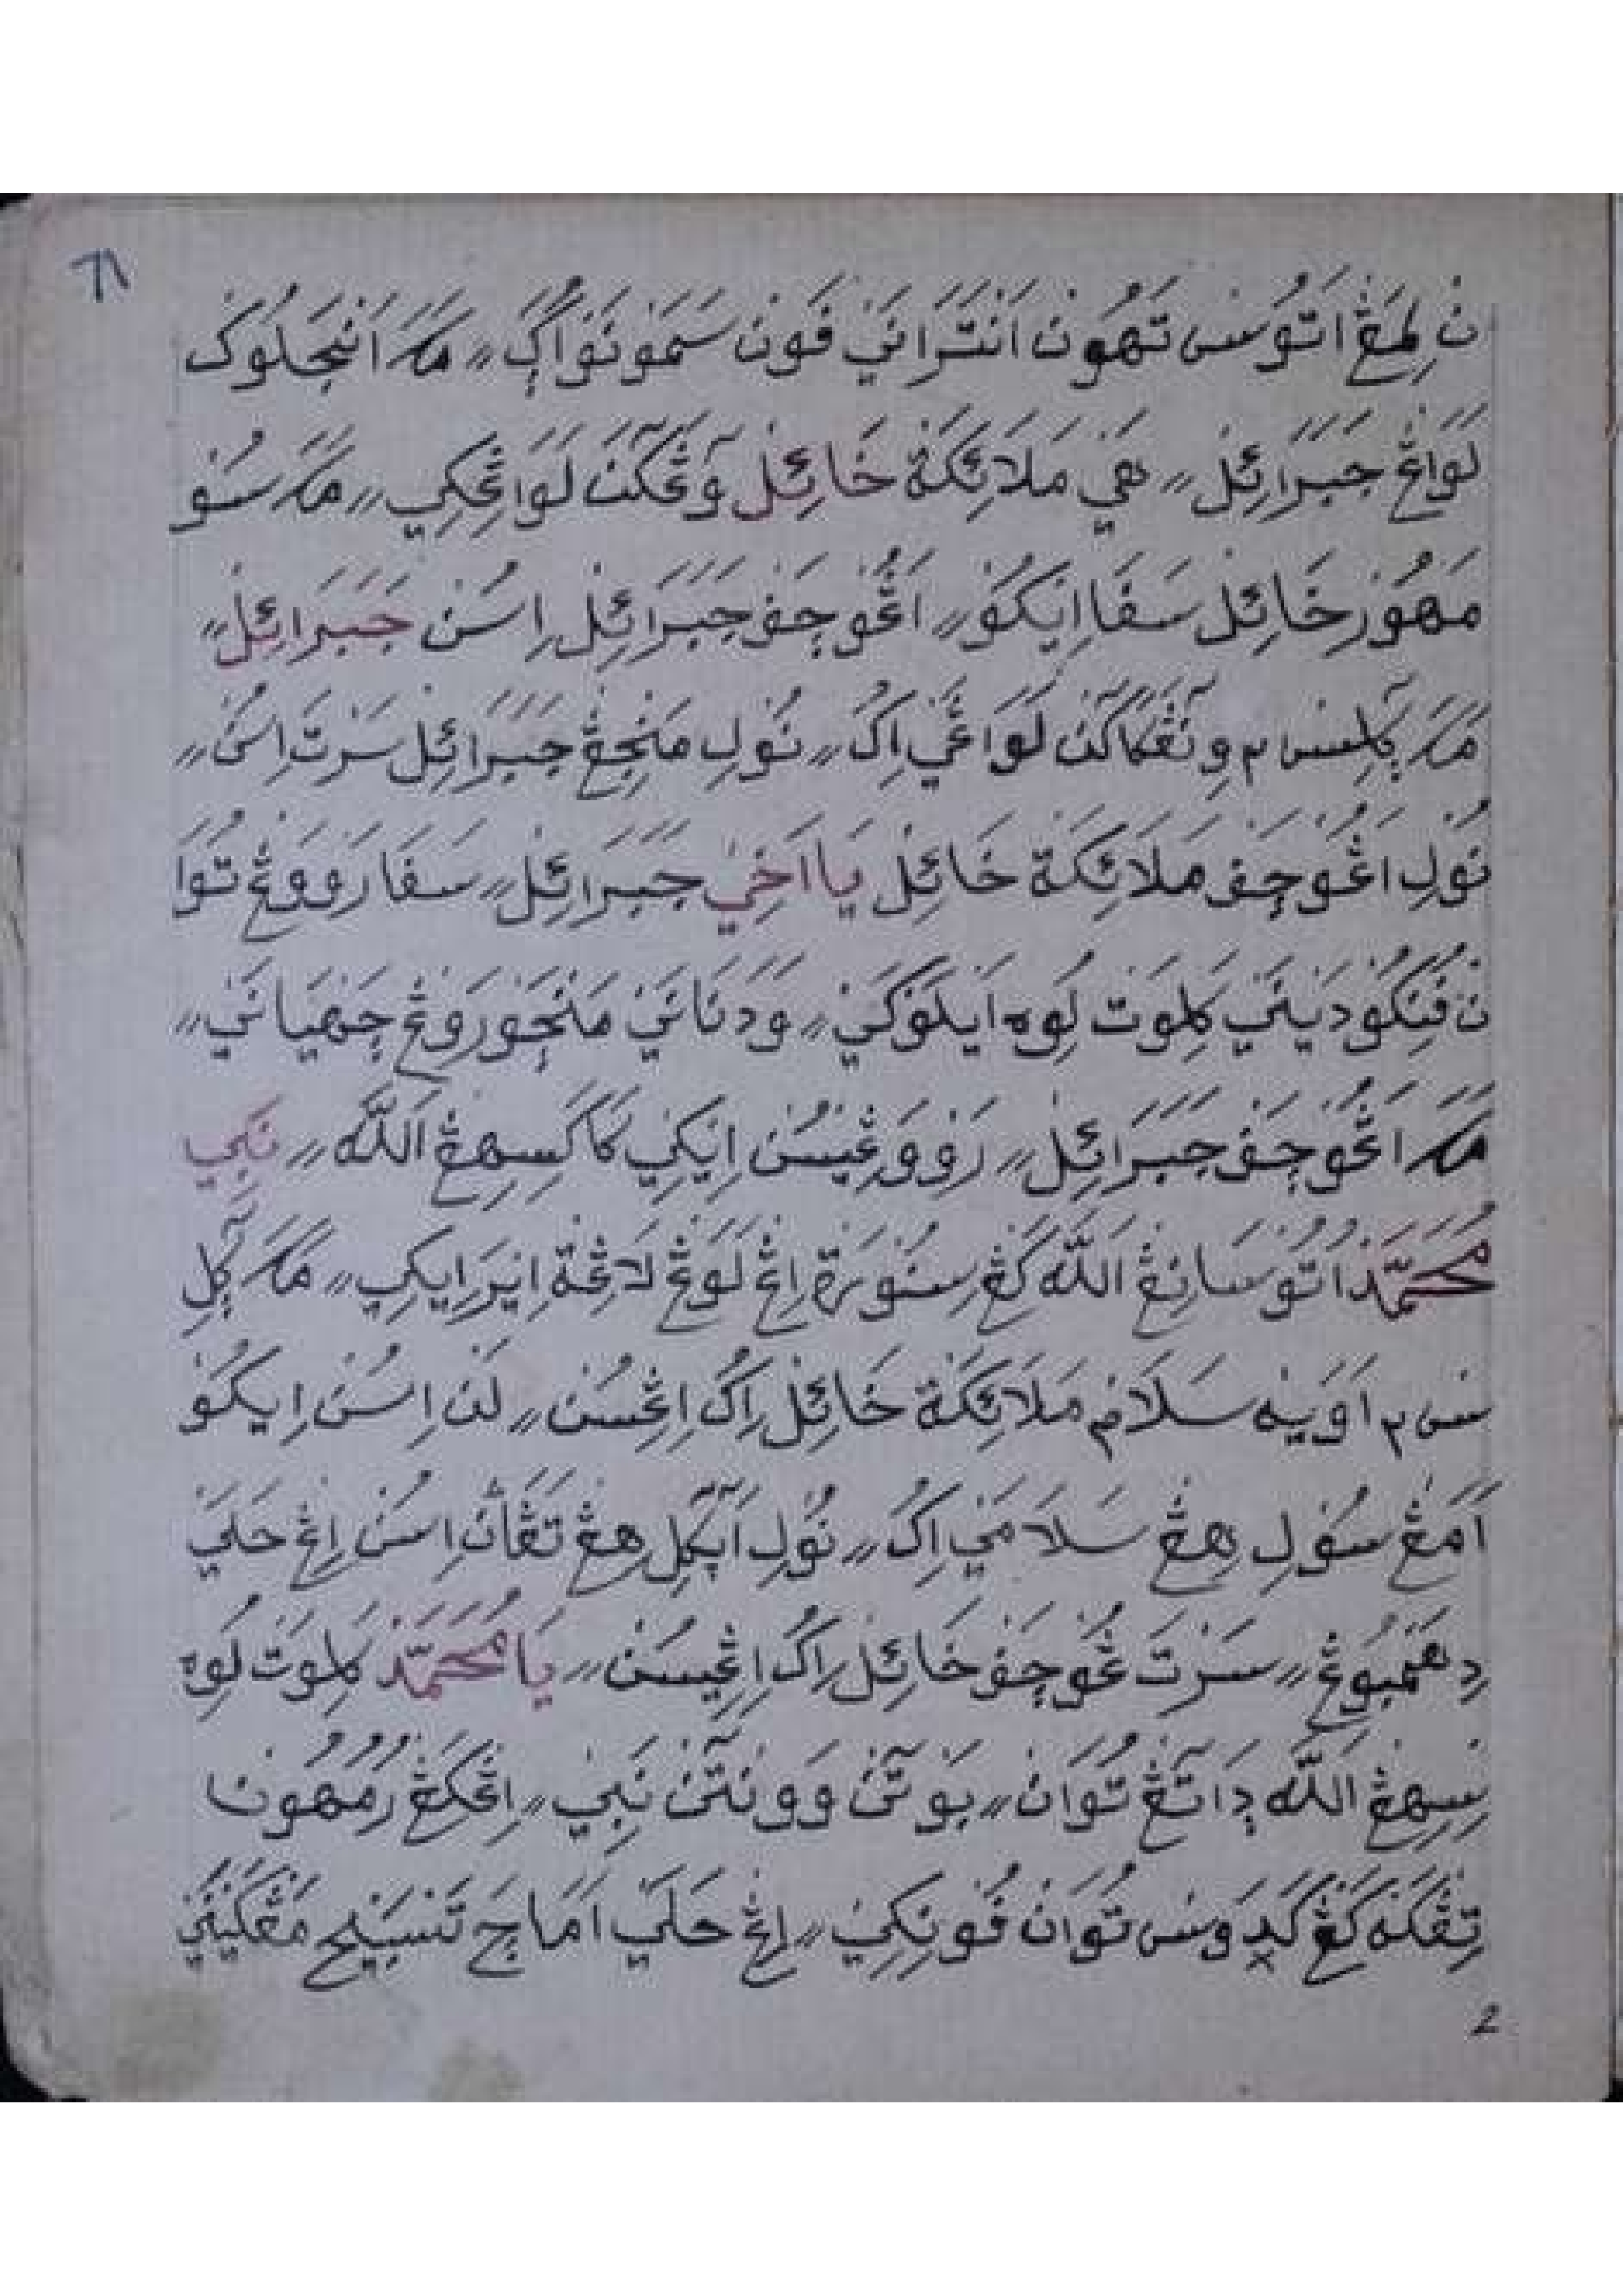 ٦١
نَ لِمَڠْ اَتُوسْ تَهُونْ اَنْتَرَانَيْ فَونْ سَمَونَواُكِ // مَكَ اَنْجَلُوكْ
لَوَاڠْ جَبَرَائِلْ // هَيْ مَلَائِكَةْ خَائِلْ وٓڠَكٓنَ لَوَاڠِكِي // مَكَ سُمَو
مَهُورْ خَائِلْ سَفَا اِيكُوْ // اَڠُوجَفْ جَبَرَائِلْ اِسُنْ جَبَرَائِلْ //
مَكَ بٓلِسْ م وِنٓڠَكَاكٓنْ لَوَاڠَيْ اِكُ // نُولِ مَنْجِڠْ جَبَرَائِلْ سَرْتَ اِسُنْ //
نُولِ اَڠُوجَفْ مَلَائِكَةْ خَائِلْ يَا اَخِيْ جَبَرَائِلْ // سَفَا رَووَڠْ تُوَا
نْ فُنِكُو دَيْنَيْ كَلِوَتْ لُوِه اَيْلَوْكَيْ // وَدَنَانَيْ مَنْچَورَوڠْ چَهْيَانَيْ //
مَكَ اَڠُوجَفْ جَبَرَائِلْ // رَووَڠِيسُنْ اِيكِي كَاكَسِهِڠْ اَللّٰه // نَبِي
مُحَمَّدْ اُتُوسَانِڠْ اَللّٰه كَڠْ سِنُوْرَةْ اِڠْ لَوَڠْ لَاڠِةْ اِيرَايكِي // مَكَ بٓلِ
سْ م اَوَيْه سَلَامْ مَلَائِكَةْ خَائِلْ اِكُ اِڠِسُنْ // لَنْ اِسُنْ اِيكُوْ
اَمْڠْ سُوْلِ هِڠْ سَلَامَيْ اِكُ // نُولِ اَڠٓمٓلْ هِڠْ تَڠَانْ اِسُنْ اِڠْ حَلَيْ
دِهَمْبُوڠْ // سَرْتَ ڠُوجَفْ خَائِلْ اِكُ اِڠِيسُنْ // يَا مُحَمَّدْ كَلِوَتْ لُوِه
سِهِڠْ اَللّٰه دَاتٓڠْ تُوَانْ // بَوْتٓنْ وَونْتٓنْ نَبِيْ // اِڠْكَڠْ رُمُهُونْ
تِڠْكَهْ كَڠْ كَدَوسْ تُوَانْ فُونِكِيْ // اِڠْ حَلَيْ اَمَاچَ تَسْبَيْح مَڠْكَيْنَيْ
2